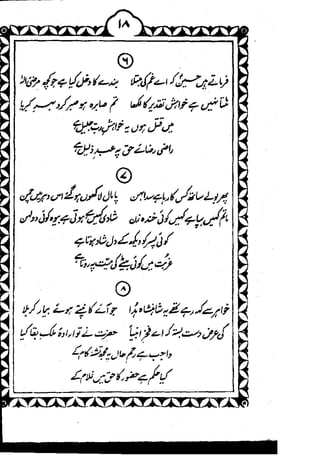 ۱۸
۶
فرماتے ہیں حسینؑ کہ اے غم کی مبتلا بندے کا دخل کیا ہے جو کچھ مرضیٔ الٰہ
ٹلتا نہیں ہے خواہشِ تقدیر کا لکھا تم صابرہ ہو صبر کرو
میں قتل ہوں یہ خواہشِ ربِ جلیل ہے
راضی رضائے حق پہ عبدِ ذلیل ہے
۷
پھر بولے پامال لاکھوں ہوگئے اس دہر میں چمن
ماتم کہیں بپا ہے کہیں کوئی خندہ زن شادی کہیں ہوئی ہے بیوہ کوئی دولہن
کوئی پسر کو دیکھ کے دل شاد ہوتا ہے
غربت میں کوئی بیٹے کی میت پہ روتا ہے
۸
خواہر سے کہہ رہے تھے یہ شاہنشاہِ ہدا جو آئے کانپتے ہوئے بیمارِ کربلا
کی عرض دست بستہ کہ اے فخرِ انبیا حضرت نے تو ارادۂ ملکِ بقا کیا
واجب ہے رحم حال پہ مجھ تشنہ کام کے
کیا حکم ہے حضور کا حق میں غلام کے